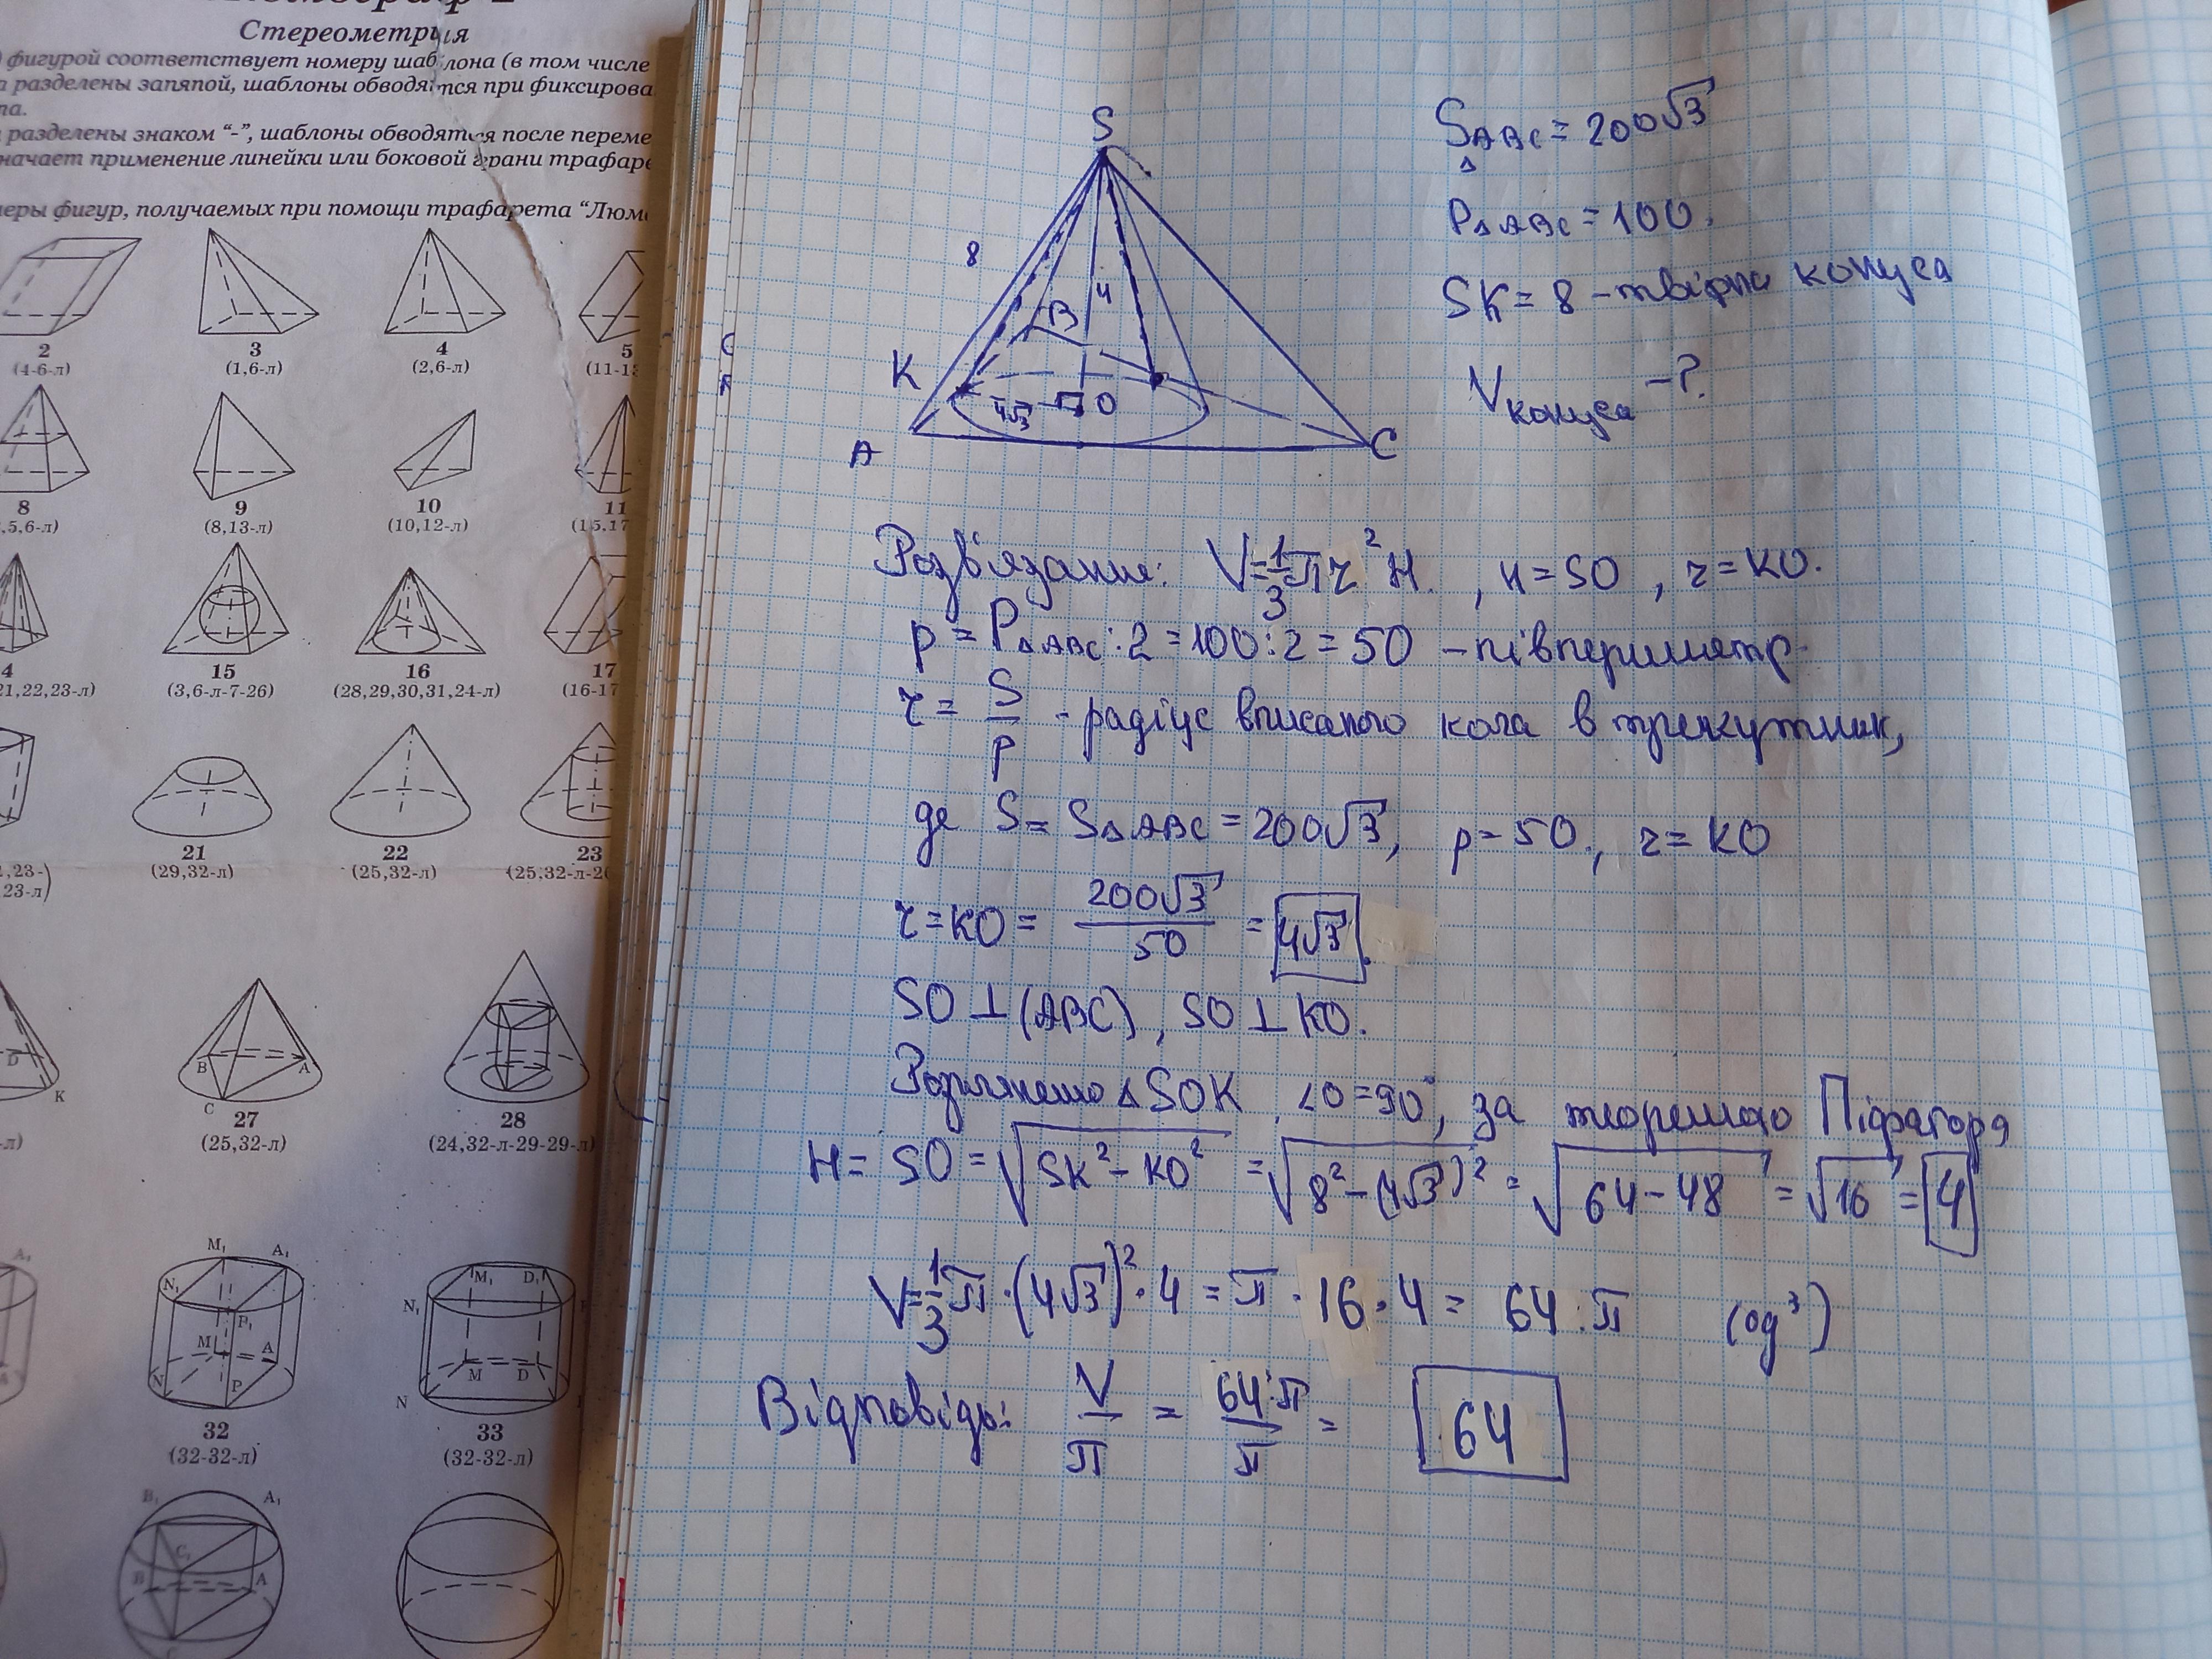 Стереометрия
фигурой соответствует номеру шаблона (в том числе
разделены запяпой, шаблоны обводятся при фиксирова
та.
разделены знаком “-”, шаблоны обводятся после переме
начает применение линейки или боковой грани трафаре
меры фигур, получаемых при помощи трафарета “Люм
2
3
4
5
(4-6-л)
(1,6-л)
(2,6-л)
8
9
10
11
,5,6-л)
(8,13-л)
(10,12-л)
(15,17
4
15
16
17
21,22,23-л)
(3,6-л-7-26)
(28,29,30,31,24-л)
(16-17
21
22
23
(29,32-л)
(25,32-л)
(25,32-л-2
,23-)
23-л)
D
K
B
A
C
27
28
(25,32-л)
(24,32-л-29-29-л)
M₁
A₁
N₁
P₁
M
A
N
P
M₁
D₁
N₁
M
D
N
32
33
(32-32-л)
(32-32-л)
B₁
A₁
C₁
B
A
S
8
4
B
K
4√3
O
A
C
S△ABC = 200√3
P△ABC = 100.
SK = 8 - твірна конуса
Vконуса - ?
Розв'язання: V = 1/3 πr²H. , H = SO , r = KO.
p = P△ABC : 2 = 100 : 2 = 50 - півпериметр.
r = S/p - радіус вписаного кола в трикутник,
де S = S△ABC = 200√3, p = 50., r = KO
r = KO = 200√3/50 = 4√3.
SO ⊥ (ABC), SO ⊥ KO.
Розглянемо △SOK, ∠O = 90°, за теоремою Піфагора
H = SO = √(SK² - KO²) = √(8² - (4√3)²) = √(64 - 48) = √16 = 4
V = 1/3 π · (4√3)² · 4 = π · 16 · 4 = 64 · π (од³)
Відповідь: V/π = 64·π/π = 64